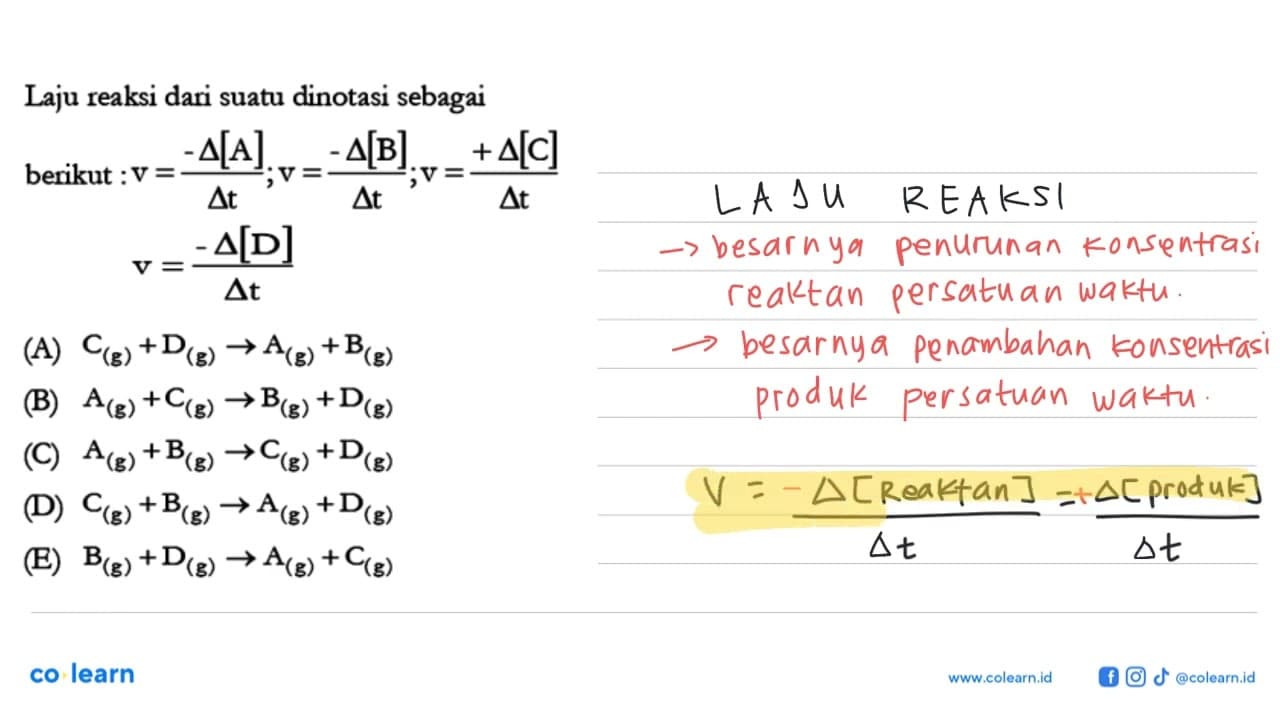 Laju reaksi dari suatu dinotasi sebagai
berikut : v = -Δ[A]/Δt ; v = -Δ[B]/Δt ; v = +Δ[C]/Δt
v = -Δ[D]/Δt
(A) C(g) + D(g) → A(g) + B(g)
(B) A(g) + C(g) → B(g) + D(g)
(C) A(g) + B(g) → C(g) + D(g)
(D) C(g) + B(g) → A(g) + D(g)
(E) B(g) + D(g) → A(g) + C(g)
LAJU REAKSI
→ besarnya penurunan konsentrasi
reaktan persatuan waktu.
→ besarnya penambahan konsentrasi
produk persatuan waktu.
V = -Δ[Reaktan]/Δt = +Δ[produk]/Δt
co learn
www.colearn.id
@colearn.id